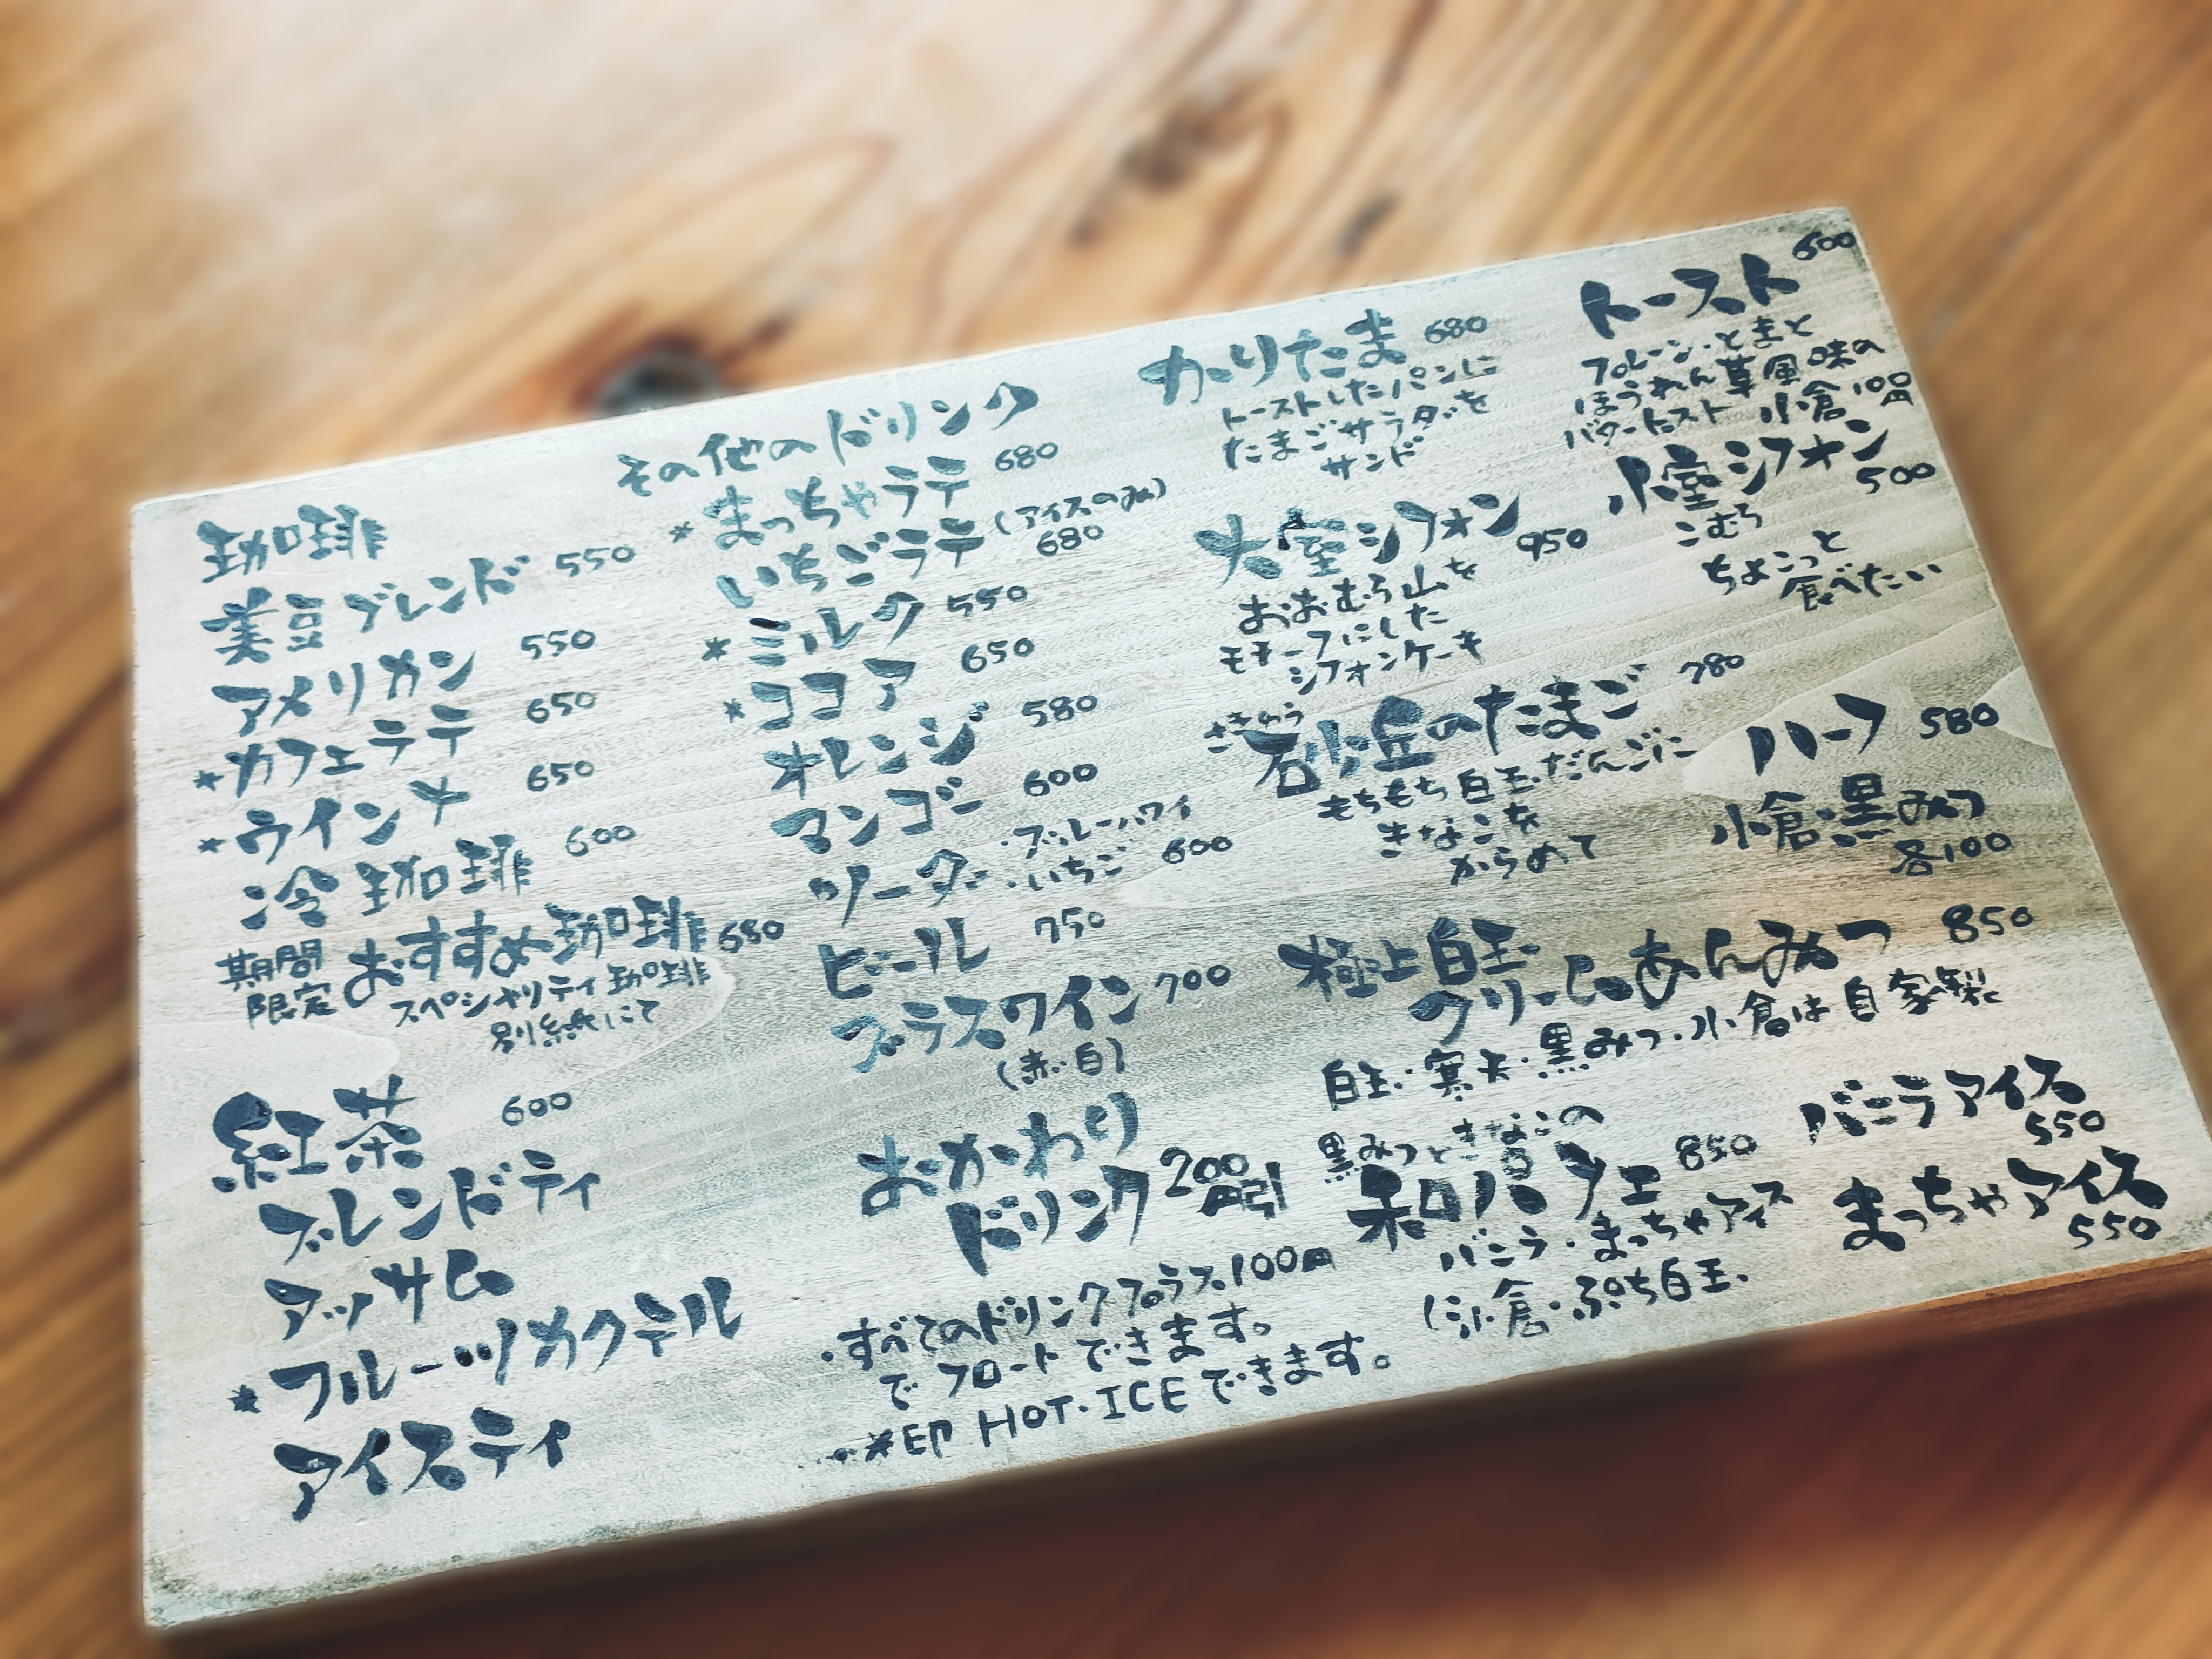 珈琲
美豆ブレンド 550
アメリカン 550
*カフェラテ 650
*ウインナ 650
冷珈琲 600
期間限定 おすすめ珈琲 680
スペシャリティ珈琲
別紙にて
紅茶 600
ブレンドティ
アッサム
*フルーツカクテル
アイスティ
その他のドリンク
*まっちゃラテ 680
いちごラテ (アイスのみ) 680
*ミルク 550
*ココア 650
オレンジ 580
マンゴー 600
ソーダー ・ブルーハワイ
・いちご 600
ビール 750
グラスワイン 700
(赤・白)
おかわり
ドリンク 200円引
・すべてのドリンクプラス100円
で フロートできます。
・*印 HOT・ICEできます。
かりたま 680
トーストしたパンに
たまごサラダを
サンド
大室シフォン 950
おおむろ山を
モチーフにした
シフォンケーキ
さきゅう
砂丘のたまご 780
もちもち白玉だんごに
きなこを
からめて
極上白玉
クリームあんみつ 850
白玉・寒天・黒みつ・小倉は自家製
黒みつときなこの
和パフェ 850
バニラ・まっちゃアイス
小倉・ぷち白玉
トースト 600
プレーン・とまと
ほうれん草風味の
バタートースト 小倉100円
小室シフォン 500
こむろ
ちょこっと
食べたい
ハーフ 580
小倉・黒みつ
各100
バニラアイス
550
まっちゃアイス
550